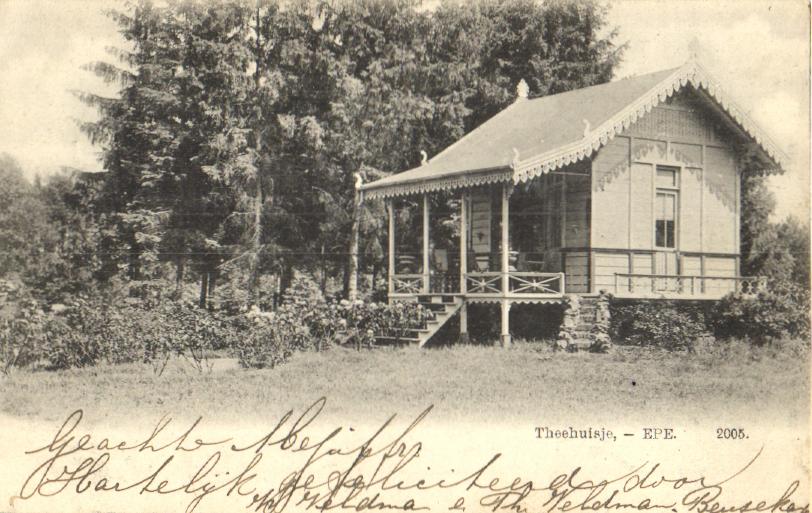 Theehuisje, – EPE. 2005.
Geachte Mejuffr
Hartelijk gefeliciteerd door
Veldma e Th. Veldman,